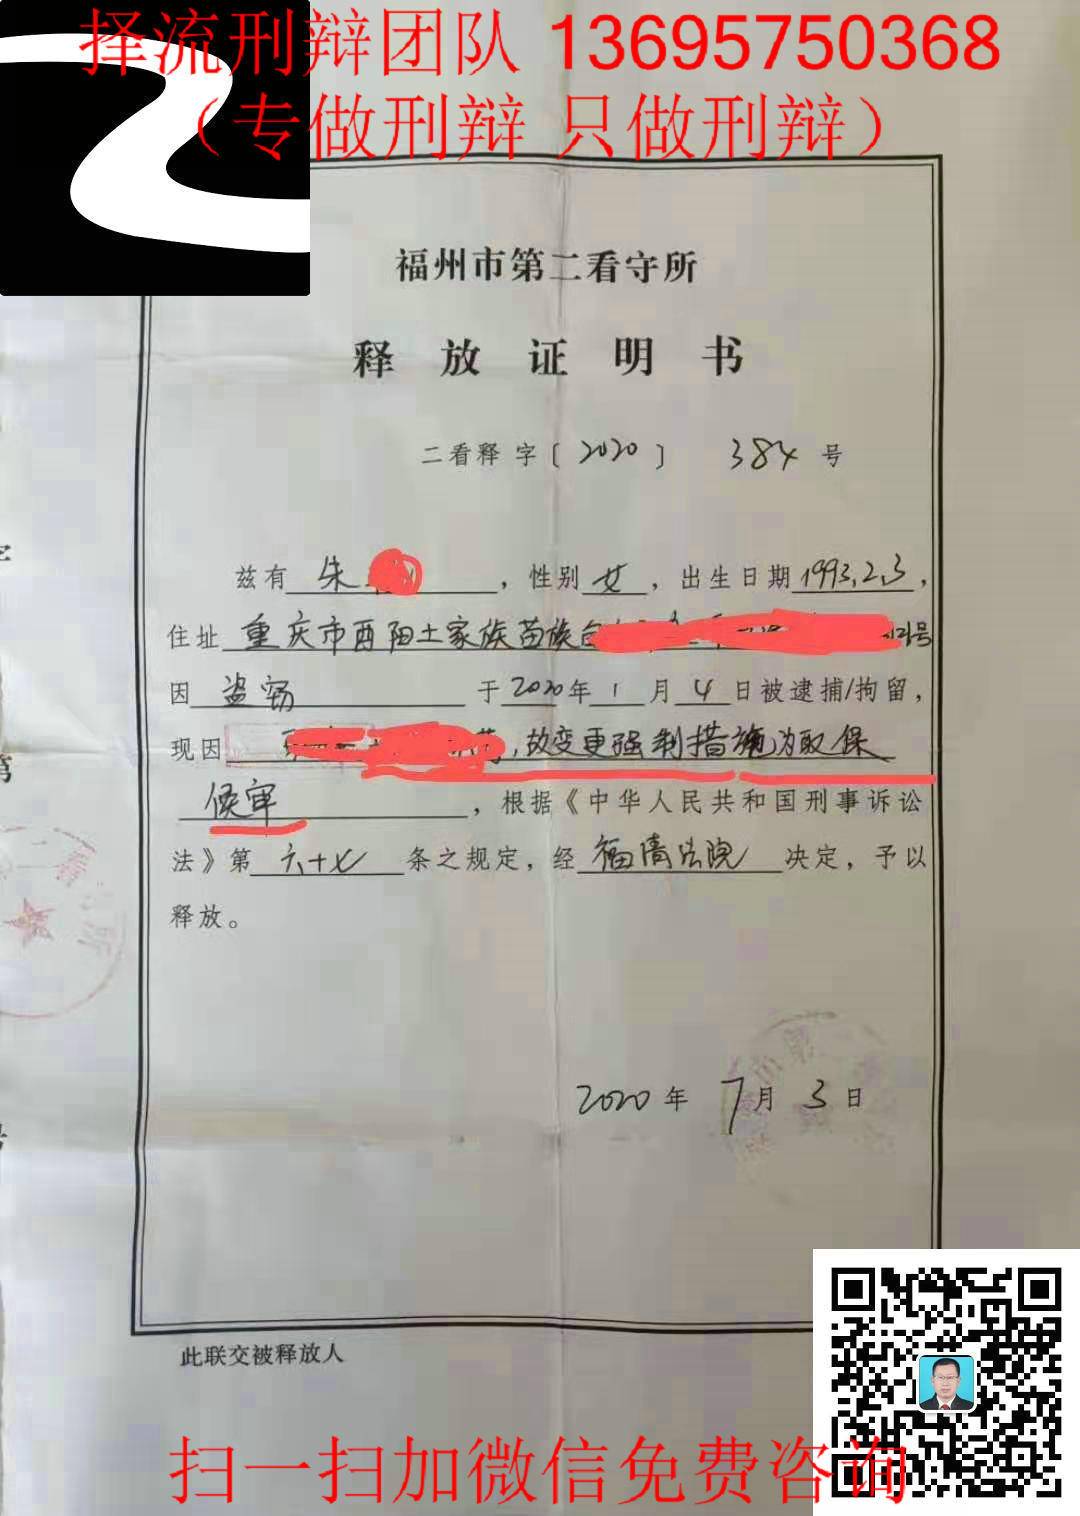 择流刑辩团队 13695750368
（专做刑辩 只做刑辩）
福州市第二看守所
释放证明书
二看释字〔2020〕384号
兹有 朱 ，性别 女 ，出生日期 1993.2.3 ，
住址 重庆市酉阳土家族苗族自 号
因 盗窃 于 2020 年 1 月 4 日被逮捕/拘留，
现因 ，故变更强制措施为取保
候审 ，根据《中华人民共和国刑事诉讼
法》第 六十七 条之规定，经 福清法院 决定，予以
释放。
2020 年 7 月 3 日
此联交被释放人
扫一扫加微信免费咨询